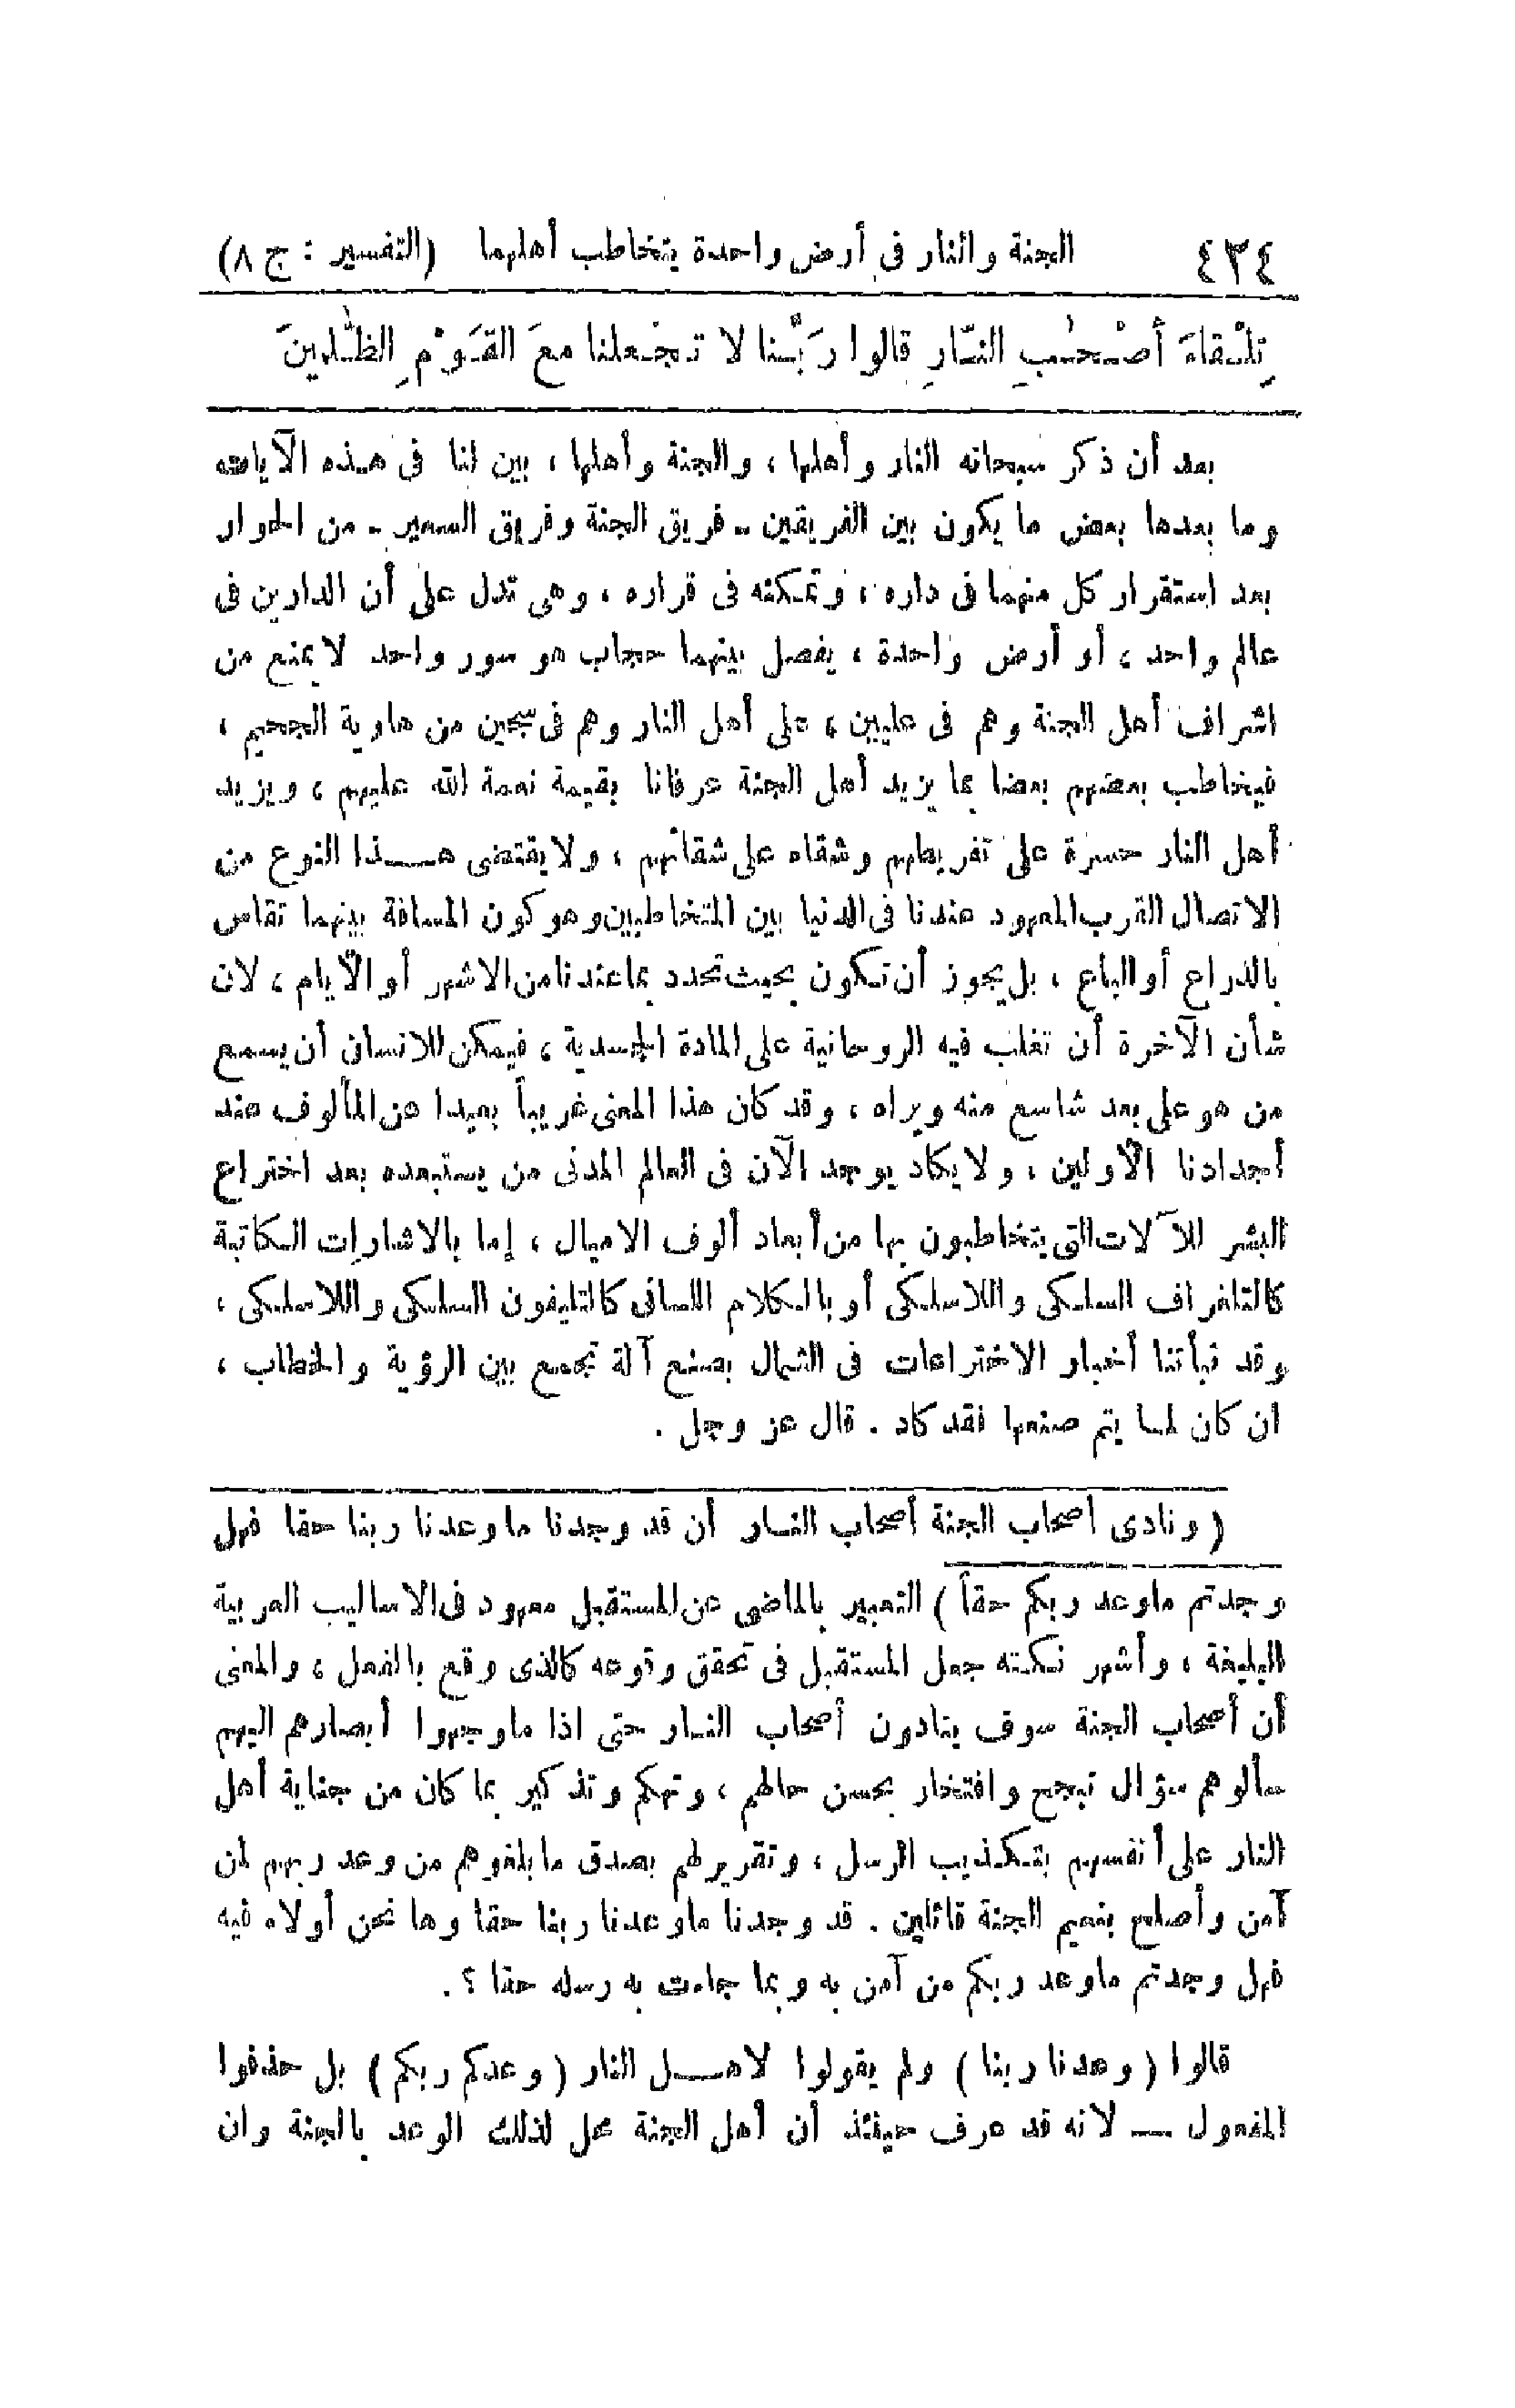 ٤٢٤ الجنة والنار فى أرض واحدة يتخاطب أهلهما (التفسير : ج ٨)
تِلْقَاءَ أَصْحٰبِ النَّارِ قالوا رَبَّنا لا تَجْعلنا معَ القَوْمِ الظّٰلمينَ
بعد أن ذكر سبحانه النار وأهلها ، والجنة وأهلها ، بين لنا فى هذه الآيات
وما بعدها بعض ما يكون بين الفريقين - فريق الجنة وفريق السعير - من الحوار
بعد استقرار كل منهما فى داره ، وتمكنه فى قراره ، وهى تدل على أن الدارين فى
عالم واحد ، أو أرض واحدة ، يفصل بينهما حجاب هو سور واحد لا يمنع من
اشراف أهل الجنة وهم فى عليين ، على أهل النار وهم فى سجين من هاوية الجحيم ،
فيخاطب بعضهم بعضا بما يزيد أهل الجنة عرفانا بقيمة نعمة الله عليهم ، ويزيد
أهل النار حسرة على تفريطهم وشقاء على شقائهم ، ولا يقتضى هـذا النوع من
الاتصال القرب المعهود عندنا فى الدنيا بين المتخاطبين وهو كون المسافة بينهما تقاس
بالذراع أو الباع ، بل يجوز أن تكون بحيث تحدد بما عندنا من الاشهر أو الأيام ، لان
شأن الآخرة أن تغلب فيه الروحانية على المادة الجسدية ، فيمكن للانسان أن يسمع
من هو على بعد شاسع منه ويراه ، وقد كان هذا المعنى غريباً بعيدا عن المألوف عند
أجدادنا الأولين ، ولا يكاد يوجد الآن فى العالم المدنى من يستبعده بعد اختراع
البشر للآلات التى يتخاطبون بها من أبعاد ألوف الاميال ، إما بالاشارات الكاتبة
كالتلغراف السلكى واللاسلكى أو بالكلام اللسانى كالتليفون السلكى واللاسلكى ،
وقد نبأتنا أخبار الاختراعات فى الشمال بصنع آلة تجمع بين الرؤية والخطاب ،
ان كان لما يتم صنعها فقد كاد . قال عز وجل .
( ونادى أصحاب الجنة أصحاب النـار أن قد وجدنا ما وعدنا ربنا حقا فهل
وجدتم ما وعد ربكم حقاً ) التعبير بالماضى عن المستقبل معهود فى الاساليب العربية
البليغة ، وأشهر نكتته جعل المستقبل فى تحقق وقوعه كالذى وقع بالفعل ، والمعنى
أن أصحاب الجنة سوف ينادون أصحاب النـار حتى اذا ما وجهوا أبصارهم اليهم
سألوهم سؤال تبجح وافتخار بحسن حالهم ، وتهكم وتذكير بما كان من جناية أهل
النار على أنفسهم بتكذيب الرسل ، وتقرير لهم بصدق ما بلغوهم من وعد ربهم لمن
آمن وأصلح بنعيم الجنة قائلين . قد وجدنا ما وعدنا ربنا حقا وها نحن أولاء فيه
فهل وجدتم ما وعد ربكم من آمن به وبما جاءت به رسله حقا ؟ .
قالوا ( وعدنا ربنا ) ولم يقولوا لاهـل النار ( وعدكم ربكم ) بل حذفوا
المفعول — لانه قد عرف حينئذ أن أهل الجنة محل لذلك الوعد بالجنة وان